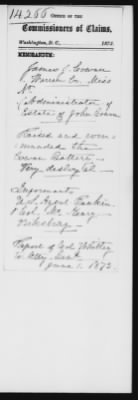 14266 OFFICE OF THE
Commissioners of Claims,
Washington, D. C., 1872.
MEMORANDUM:
James J. Cowan
Warren Co. Miss
No
Administrator of
Estate of John Cowan
Raised and com-
manded the
Cowan Battery -
Very disloyal -
Informants
U.S. Agent Rankin
Col. Mc
Vicksburg -
Report of Col
June 1. 1872.